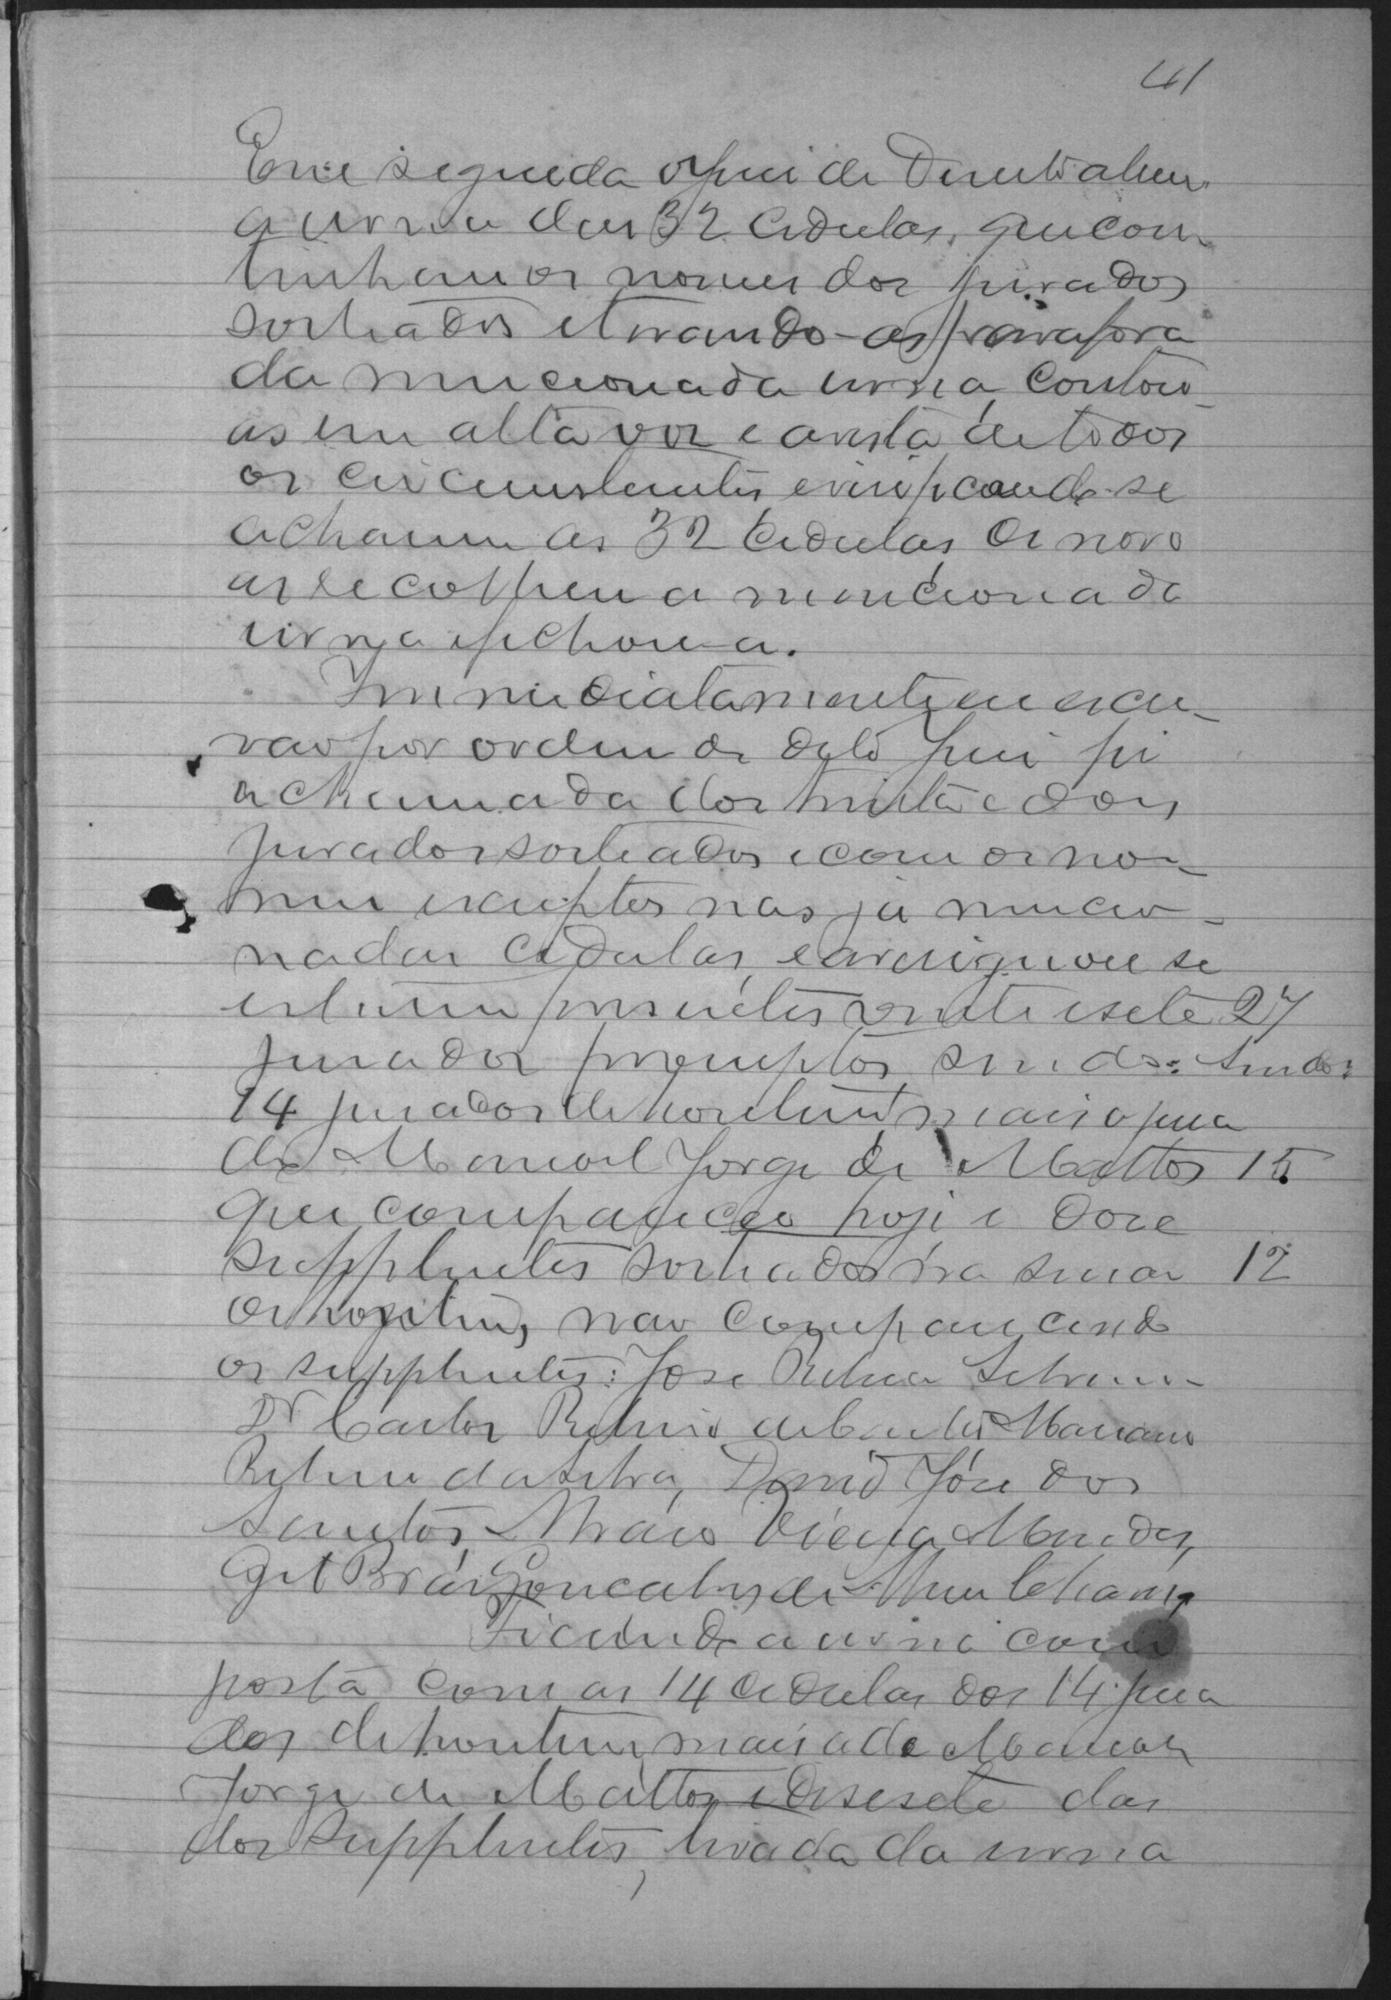 41
Em seguida o Juiz de Direito abriu
a urna das 32 cedulas, que con
tinham os nomes dos jurados
sorteados e tirando-as para fora
da mencionada urna, contou-
as em alta voz e a vista de todos
os circumstantes e verificando-se
acharem as 32 cedulas de novo
as recolheu a mencionada
urna e fechou-a.
Immediatamente eu escri-
vão por ordem do dito Juiz fiz
a chamada dos trinta e dois
jurados sorteados e com os no-
mes escriptos nas já mencio-
nadas cedulas, e averiguou se
estarem presentes vinte e sete 27
jurados promptos, sendo: sendo:
14 jurados de hontem, mais o jura
do Manoel Jorge de Mattos 15
que compareceu hoje e doze
supplentes sorteados na 12
de hontem, não comparecendo
os supplentes: José Ribeiro
Dr Carlos Ribeiro Mariano
Ribeiro da Silva, David José dos
Santos, Vieira Mendes,
Gil Braz Gonçalves de
Ficando a urna com
posta com as 14 cedulas dos 14 jura
dos de hontem, mais a de Manoel
Jorge de Mattos e desesete das
dos supplentes, tirada da urna